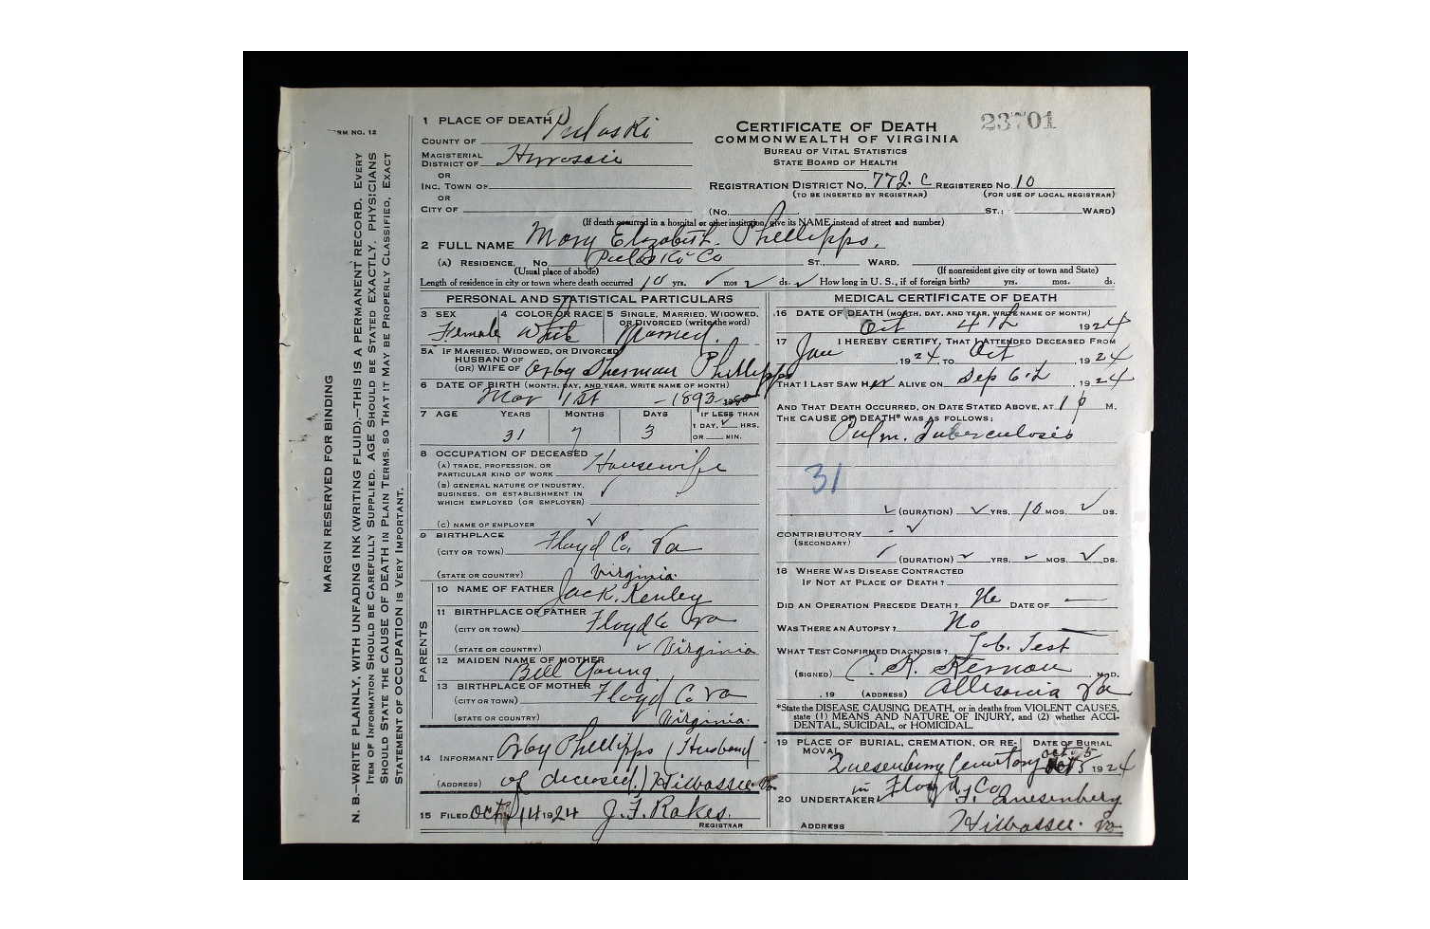 RM NO. 12
MARGIN RESERVED FOR BINDING
N. B.—WRITE PLAINLY, WITH UNFADING INK (WRITING FLUID).—THIS IS A PERMANENT RECORD. EVERY
ITEM OF INFORMATION SHOULD BE CAREFULLY SUPPLIED. AGE SHOULD BE STATED EXACTLY. PHYSICIANS
SHOULD STATE THE CAUSE OF DEATH IN PLAIN TERMS, SO THAT IT MAY BE PROPERLY CLASSIFIED. EXACT
STATEMENT OF OCCUPATION IS VERY IMPORTANT.
1 PLACE OF DEATH Pulaski
COUNTY OF
MAGISTERIAL
DISTRICT OF
OR
INC. TOWN OF
OR
CITY OF
CERTIFICATE OF DEATH
COMMONWEALTH OF VIRGINIA
BUREAU OF VITAL STATISTICS
STATE BOARD OF HEALTH
23701
REGISTRATION DISTRICT NO. 772.C REGISTERED NO. 10
(TO BE INSERTED BY REGISTRAR) (FOR USE OF LOCAL REGISTRAR)
(NO. ST.; WARD)
(If death occurred in a hospital or other institution, give its NAME instead of street and number)
2 FULL NAME Mary Elizabeth Phellipps.
(A) RESIDENCE. NO. Pulaski Co ST. WARD.
(Usual place of abode) (If nonresident give city or town and State)
Length of residence in city or town where death occurred 10 yrs. ✓ mos ✓ ds. ✓ How long in U. S., if of foreign birth? yrs. mos. ds.
PERSONAL AND STATISTICAL PARTICULARS
3 SEX 4 COLOR OR RACE 5 SINGLE, MARRIED, WIDOWED, OR DIVORCED (write the word)
Female White Married.
5A IF MARRIED, WIDOWED, OR DIVORCED
HUSBAND OF
(OR) WIFE OF Orby Sherman Phellipps
6 DATE OF BIRTH (MONTH, DAY, AND YEAR, WRITE NAME OF MONTH)
Mar 1st - 1893
7 AGE YEARS MONTHS DAYS IF LESS THAN
1 DAY, ✓ HRS.
OR MIN.
31 7 3
8 OCCUPATION OF DECEASED
(A) TRADE, PROFESSION, OR
PARTICULAR KIND OF WORK Housewife
(B) GENERAL NATURE OF INDUSTRY,
BUSINESS, OR ESTABLISHMENT IN
WHICH EMPLOYED (OR EMPLOYER) ✓
(C) NAME OF EMPLOYER ✓
9 BIRTHPLACE
(CITY OR TOWN) Floyd Co. Va
(STATE OR COUNTRY) Virginia.
PARENTS
10 NAME OF FATHER Jack. Kenley
11 BIRTHPLACE OF FATHER
(CITY OR TOWN) Floyd Co Va
(STATE OR COUNTRY) ✓ Virginia
12 MAIDEN NAME OF MOTHER
Bell Young.
13 BIRTHPLACE OF MOTHER
(CITY OR TOWN) Floyd Co Va
(STATE OR COUNTRY) ✓ Virginia.
14 INFORMANT Orby Phellipps (Husband
(ADDRESS) of deceased.) Hiwassee Va
15 FILED Oct 14 1924 J. F. Rakes.
REGISTRAR
MEDICAL CERTIFICATE OF DEATH
16 DATE OF DEATH (MONTH, DAY, AND YEAR, WRITE NAME OF MONTH)
Oct 4th 1924
17 I HEREBY CERTIFY, THAT I ATTENDED DECEASED FROM
Jan , 1924 TO Oct , 1924
THAT I LAST SAW HER ALIVE ON Sep 6th , 1924
AND THAT DEATH OCCURRED, ON DATE STATED ABOVE, AT 1 P M.
THE CAUSE OF DEATH* WAS AS FOLLOWS:
Pulm. Tuberculosis
31
✓ (DURATION) ✓ YRS. 10 MOS. ✓ DS.
CONTRIBUTORY ✓
(SECONDARY)
✓ (DURATION) ✓ YRS. ✓ MOS. ✓ DS.
18 WHERE WAS DISEASE CONTRACTED
IF NOT AT PLACE OF DEATH?
DID AN OPERATION PRECEDE DEATH? No DATE OF —
WAS THERE AN AUTOPSY? No
WHAT TEST CONFIRMED DIAGNOSIS? T-b. Test
(SIGNED) C. K. Kernan M.D.
, 19 (ADDRESS) Allisonia Va
*State the DISEASE CAUSING DEATH, or in deaths from VIOLENT CAUSES,
state (1) MEANS AND NATURE OF INJURY, and (2) whether ACCI-
DENTAL, SUICIDAL, or HOMICIDAL.
19 PLACE OF BURIAL, CREMATION, OR RE-
MOVAL DATE OF BURIAL
Oct 5
Quesenberry Cemetery Oct 5 1924
in Floyd, Co
20 UNDERTAKER F. Quesenberg
ADDRESS Hiwassee. Va